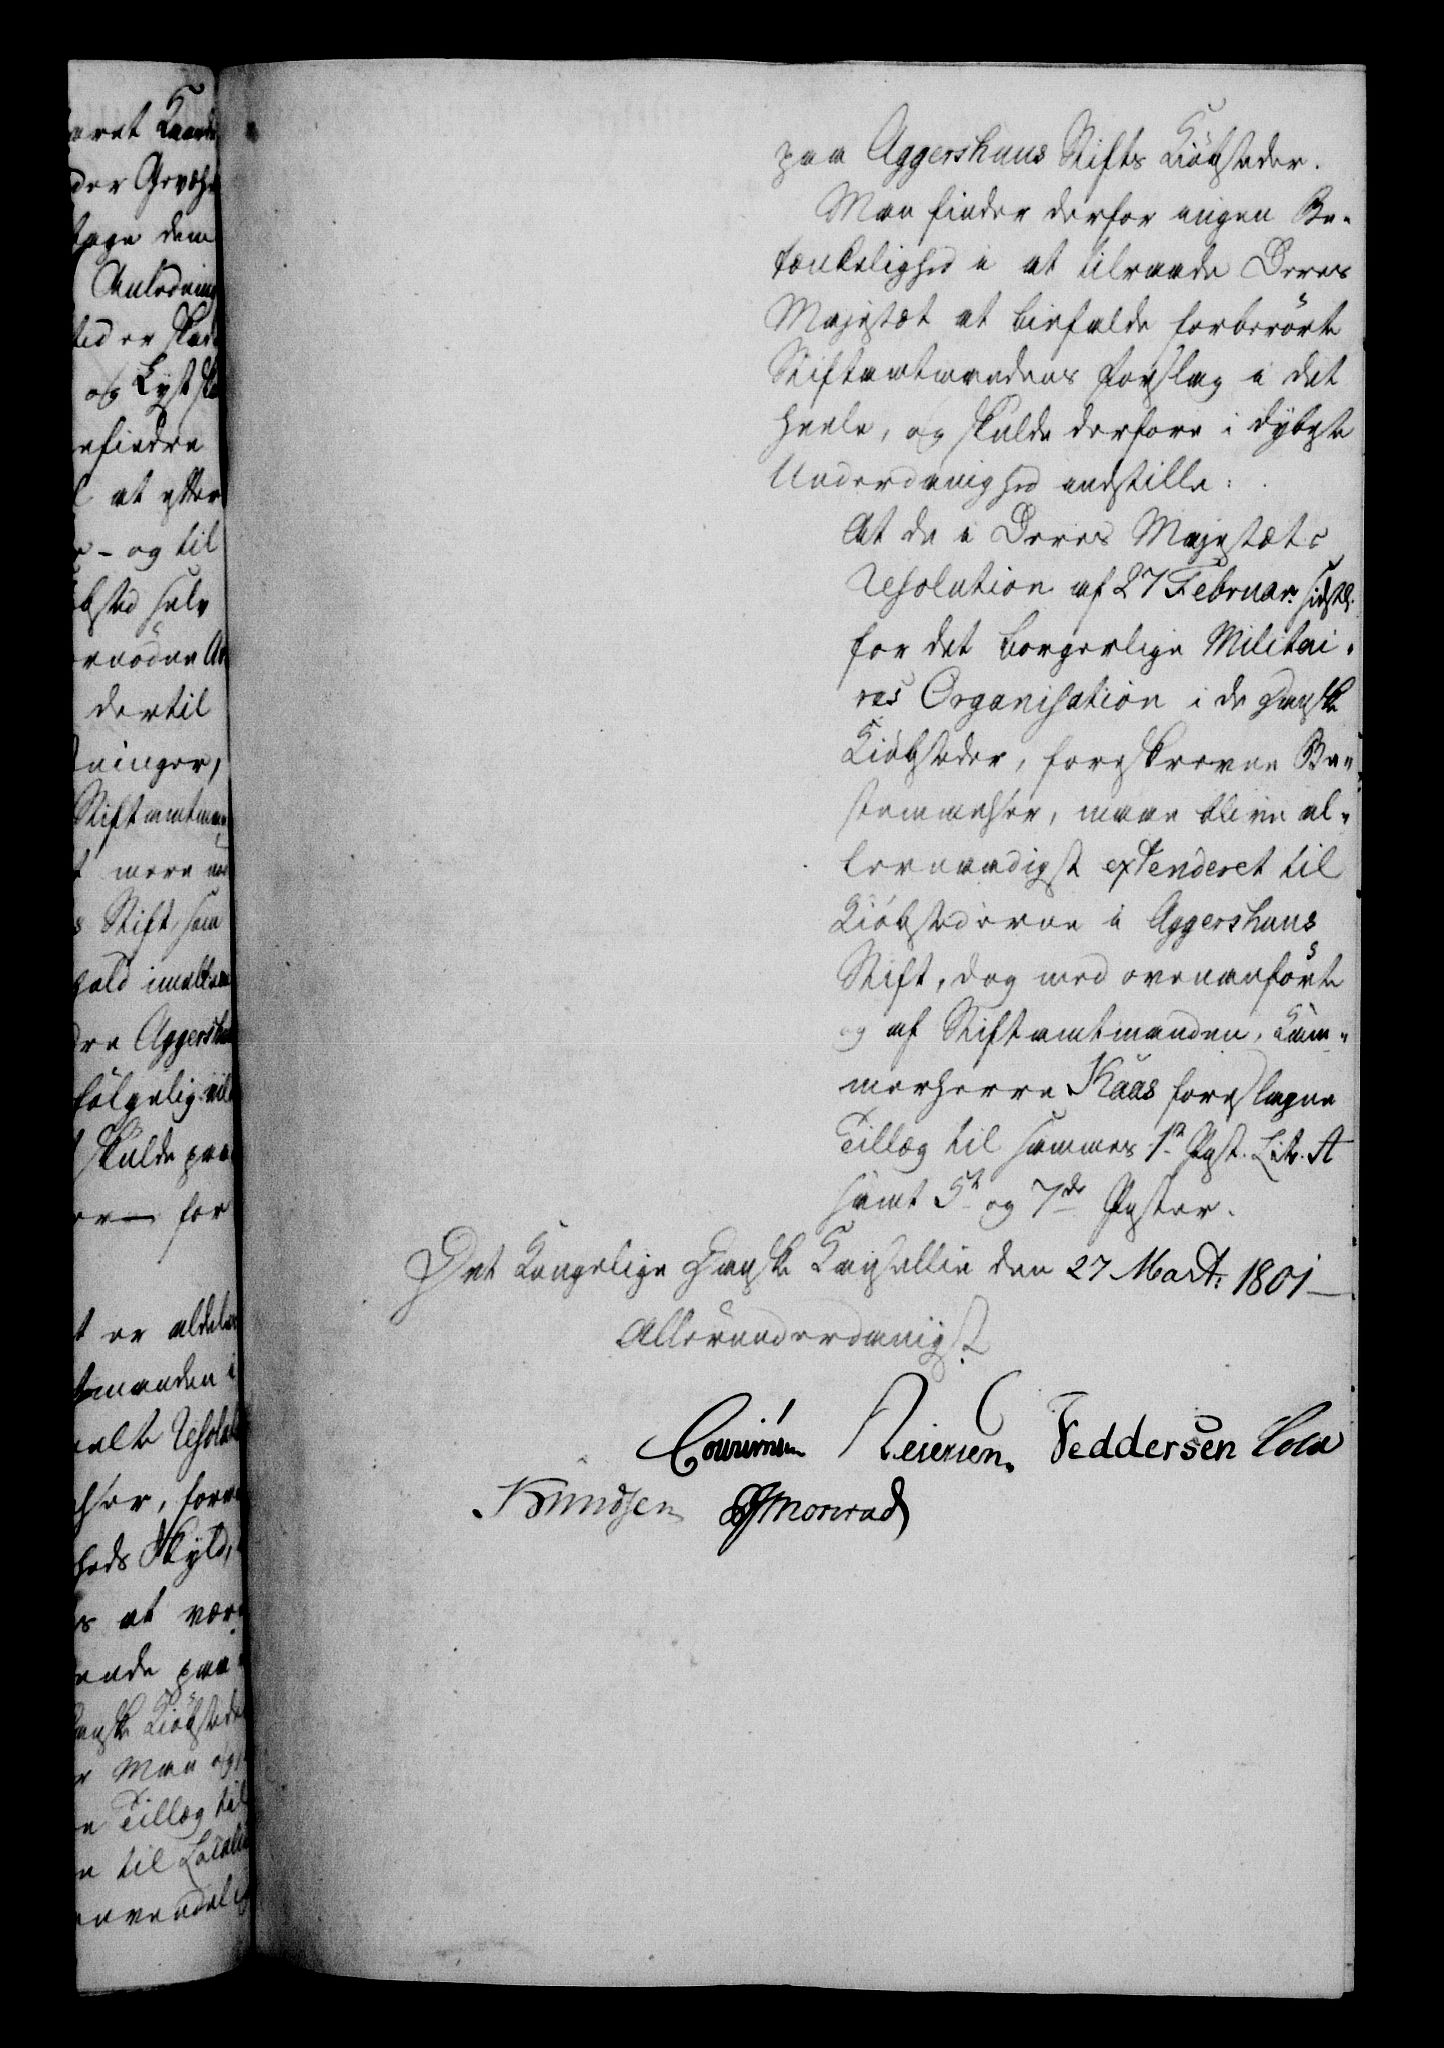 paa Aggershuus Stifts Kiøbstæder.
Man finder derfor ingen Be-
tænkelighed i at tilraade Deres
Majestæt at bifalde forberørte
Stiftamtmandens Forslag i det
heele, og skulde derfore i dybeste
Underdanighed indstille:
At de i Deres Majestæts
Resolution af 27 Februar. sidstl.
for det borgerlige Militai-
res Organisation i de Danske
Kiøbstæder, foreskrevne Be-
stemmelser, maae blive al-
lernaadigst extenderet til
Kiøbstæderne i Aggershuus
Stift, dog med ovenanførte
og af Stiftamtmanden, Kam-
merherre Kaas foreslagne
Tillæg til sammes 1te Post. Litr. A
samt 5te og 7de Poster.
Det Kongelige Danske Kancellie den 27 Mart. 1801
Allerunderdanigst
Reiersen. Feddersen Cold
Knudsen Monrad
aret
der
tage dem
Anledning
og Lyst
befindes
at
- og til
selv
dertil
ninger,
Stiftamtman
mere
Stift, som
imellem
Aggersh
følgelig
skulde paa
for
er aldeles
tmanden i
Resol
Skyld,
at være
ende paa
Danske Kiøbstæde
Man og
Tillæg til
til Locali
anvendel